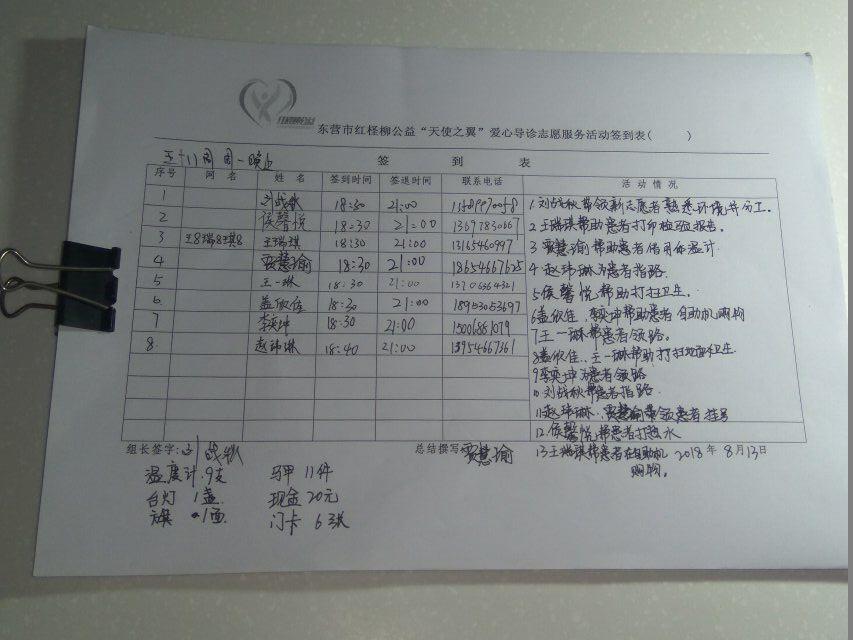 东营市红柽柳公益“天使之翼”爱心导诊志愿服务活动签到表( )
五十八周 周一晚上
签 到 表
序号 网 名 姓 名 签到时间 签退时间 联系电话 活 动 情 况
1 刘战秋 18:30 21:00
2 侯馨悦 18:30 21:00 13697830667
3 王8瑞8琪8 王瑞琪 18:30 21:00 13165460997
4 贾慧瑜 18:30 21:00 18654667625
5 王一琳 18:30 21:00
6 盖欣佳 18:30 21:00 18953053697
7 李奕冲 18:30 21:00 15006881079
8 赵玮琳 18:40 21:00 13954667361
1 刘战秋带领新志愿者熟悉环境并分工。
2 王瑞琪帮助患者打印检验报告。
3 贾慧瑜帮助患者借用体温计
4 赵玮琳为患者指路
5 侯馨悦帮助打扫卫生。
6 盖欣佳,李奕冲帮助患者自动机购物
7 王一琳带患者领路。
8 盖欣佳、王一琳帮助打扫地面卫生
9 李奕冲为患者领路
10 刘战秋帮患者指路
11 赵玮琳、贾慧瑜带领患者挂号
12 侯馨悦帮患者打热水
13 王瑞琪帮患者在自动机
购物。
组长签字: 刘战秋 总结撰写: 贾慧瑜 2018年 8月13日
温度计 9支 马甲 11件
台灯 1盏 现金 20元
旗 1面 门卡 6张